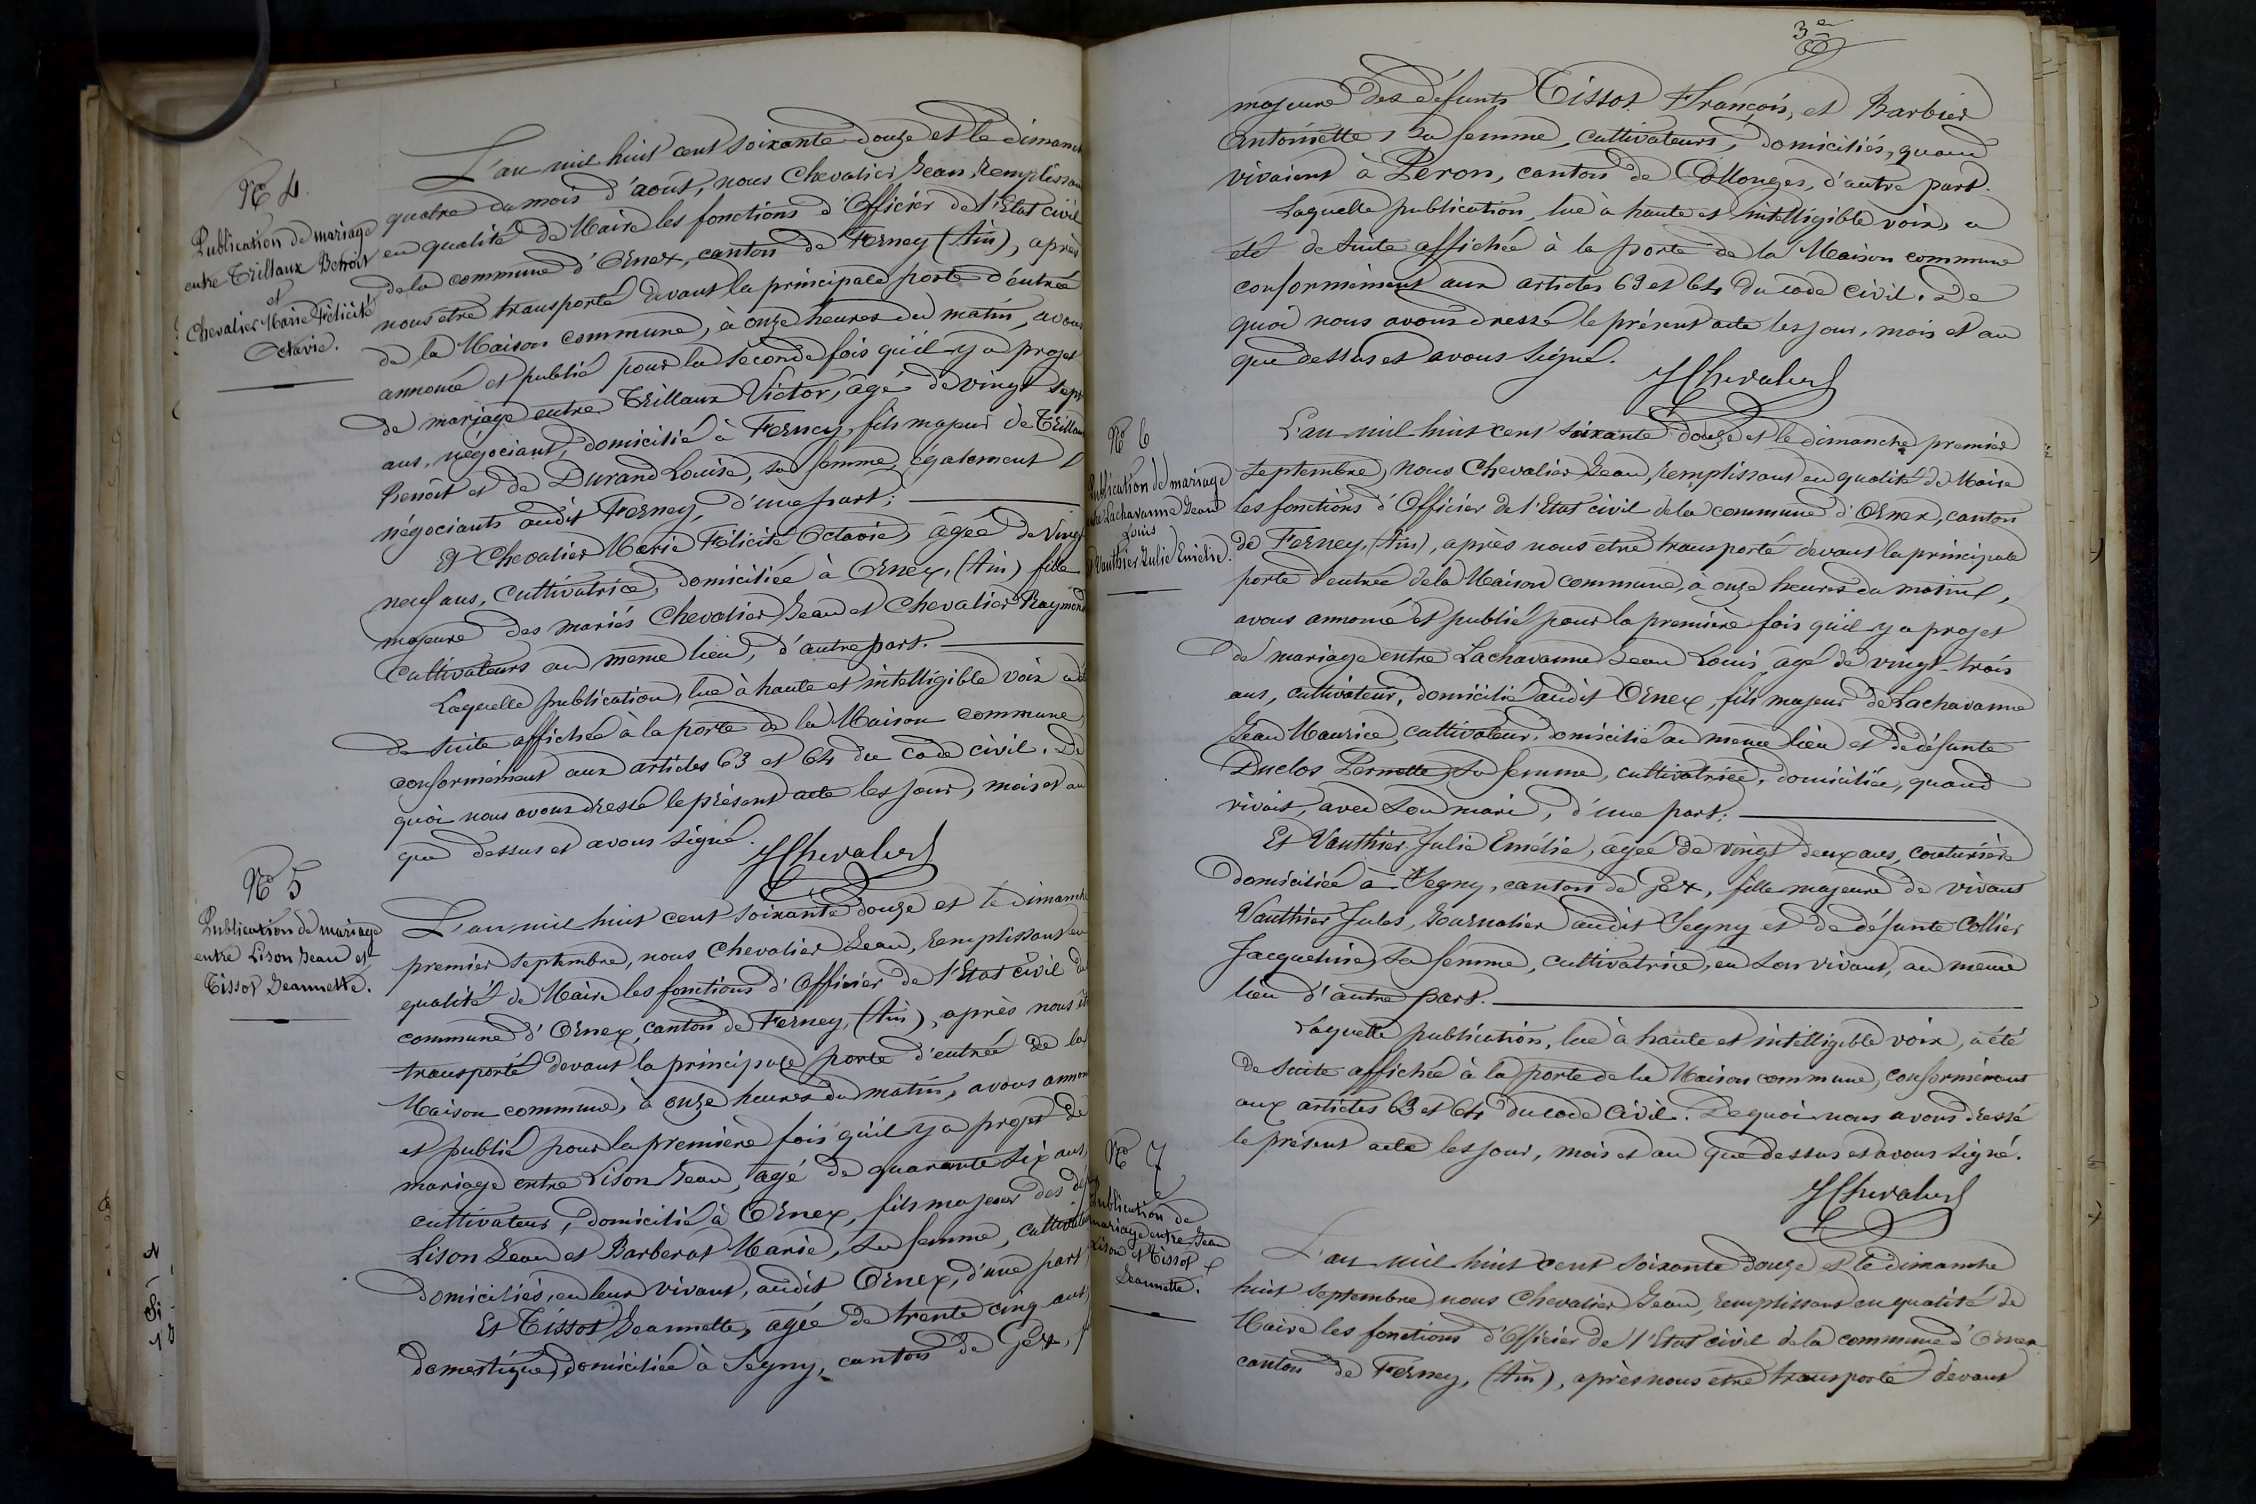 N° 4.
Publication de mariage
entre Trillaux Benoit
et
Chevalier Marie Félicité
Octavie.
L'an mil huit cent soixante douze et le dimanche
quatre du mois d'août, nous Chevalier Jean, remplissant
en qualité de Maire les fonctions d'Officier de l'Etat civil
de la commune d'Ornex, canton de Ferney (Ain), après
nous être transporté devant la principale porte d'entrée
de la Maison commune, à onze heures du matin, avons
annoncé et publié pour la seconde fois qu'il y a projet
de mariage entre Trillaux Victor, âgé de vingt sept
ans, négociant, domicilié à Ferney, fils majeur de Trillaux
Benoit et de Durand Louise, sa femme, également
négociants audit Ferney, d'une part;
Et Chevalier Marie Félicité Octavie, âgée de vingt
neuf ans, cultivatrice, domiciliée à Ornex, (Ain) fille
majeure des mariés Chevalier Jean et Chevalier Raymond
cultivateurs au même lieu, d'autre part.
Laquelle publication, lue à haute et intelligible voix a été
de suite affichée à la porte de la Maison commune
conformément aux articles 63 et 64 du code civil. De
quoi nous avons dressé le présent acte les jour, mois et an
que dessus et avons signé.
JChevalier
N° 5
Publication de mariage
entre Lison Jean et
Tissot Jeannette.
L'an mil huit cent soixante douze et le dimanche
premier septembre, nous Chevalier Jean, remplissant en
qualité de Maire les fonctions d'Officier de l'Etat civil de
commune d'Ornex, canton de Ferney, (Ain), après nous êt
transporté devant la principale porte d'entrée de la
Maison commune, à onze heures du matin, avons annon
et publié pour la première fois qu'il y a projet de
mariage entre Lison Jean, âgé de quarante six ans,
cultivateur, domicilié à Ornex, fils majeur des déf
Lison Jean et Barberat Marie, sa femme, cultivateurs
domiciliés, en leur vivant, audit Ornex, d'une part
Et Tissot Jeannette, âgée de trente cinq ans,
domestique, domiciliée à Segny, canton de Gex, f
3e
majeure des défunts Tissot François, et Barbier
Antoinette, sa femme, cultivateurs, domiciliés, quand
vivaient à Péron, canton de Collonges, d'autre part.
Laquelle publication, lue à haute et intelligible voix, a
été de suite affichée à la porte de la Maison commune
conformément aux articles 63 et 64 du code civil. De
quoi nous avons dressé le présent acte les jour, mois et an
que dessus et avons signé.
JChevalier
N° 6
Publication de mariage
entre Lachavanne Jean
Louis
et Vauthier Julie Emélie.
L'an mil huit cent soixante douze et le dimanche premier
septembre, nous Chevalier Jean, remplissant en qualité de Maire
les fonctions d'Officier de l'Etat civil de la commune d'Ornex, canton
de Ferney, (Ain), après nous être transporté devant la principale
porte d'entrée de la Maison commune, à onze heures du matin,
avons annoncé et publié pour la première fois qu'il y a projet
de mariage entre Lachavanne Jean Louis, âgé de vingt-trois
ans, cultivateur, domicilié audit Ornex, fils majeur de Lachavanne
Jean Maurice, cultivateur, domicilié au même lieu et de défunte
Duclos Pernette, sa femme, cultivatrice, domiciliée, quand
vivait, avec son mari, d'une part;
Et Vauthier Julie Emélie, âgée de vingt deux ans, couturière
domiciliée à Segny, canton de Gex, fille majeure de vivant
Vauthier Jules, journalier audit Segny et de défunte Collier
Jacqueline, sa femme, cultivatrice, en son vivant, au même
lieu d'autre part.
Laquelle publication, lue à haute et intelligible voix, a été
de suite affichée à la porte de la Maison commune, conformément
aux articles 63 et 64 du code civil. De quoi nous avons dressé
le présent acte les jour, mois et an que dessus et avons signé.
JChevalier
N° 7
Publication de
mariage entre Jean
Lison et Tissot
Jeannette.
L'an mil huit cent soixante douze et le dimanche
huit septembre, nous Chevalier Jean, remplissant en qualité de
Maire les fonctions d'Officier de l'Etat civil de la commune d'Ornex
canton de Ferney, (Ain), après nous être transporté devant